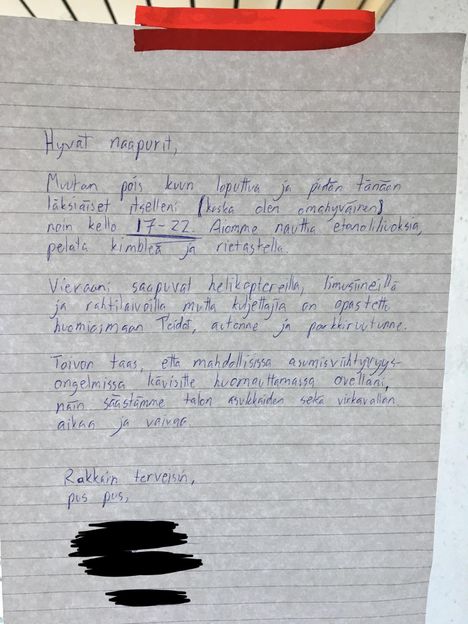 Hyvät naapurit,
Muutan pois kuun loputtua ja pidän tänään
läksiäiset itselleni (koska olen omahyväinen)
noin kello 17-22. Aiomme nauttia etanoliliuoksia,
pelata kimbleä ja rietastella.
Vieraani saapuvat helikoptereilla, limusiineilla
ja rahtilaivoilla mutta kuljettajia on opastettu
huomioimaan Teidät, autonne ja parkkiruutunne.
Toivon taas, että mahdollisissa asumisviihtyvyys-
ongelmissa kävisitte huomauttamassa ovellani,
näin säästämme talon asukkaiden sekä virkavallan
aikaa ja vaivaa.
Rakkain terveisin,
pus pus,